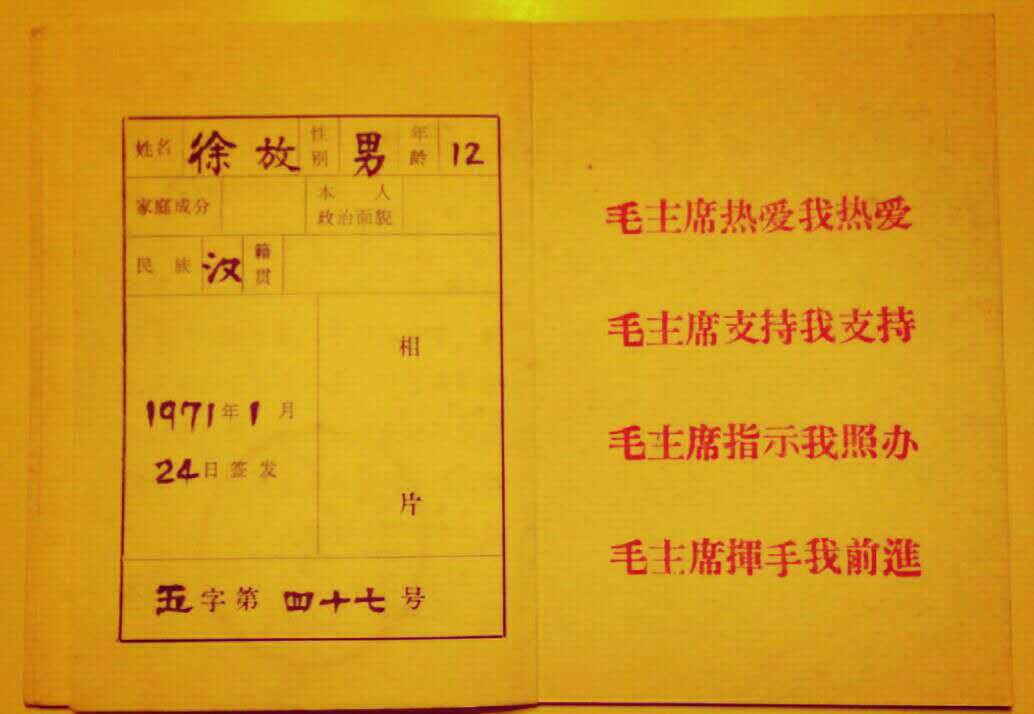 姓名 徐放 性别 男 年龄 12
家庭成分 本人政治面貌
民族 汉 籍贯
相片
1971年1月
24日签发
五字第四十七号
毛主席热爱我热爱
毛主席支持我支持
毛主席指示我照办
毛主席揮手我前進